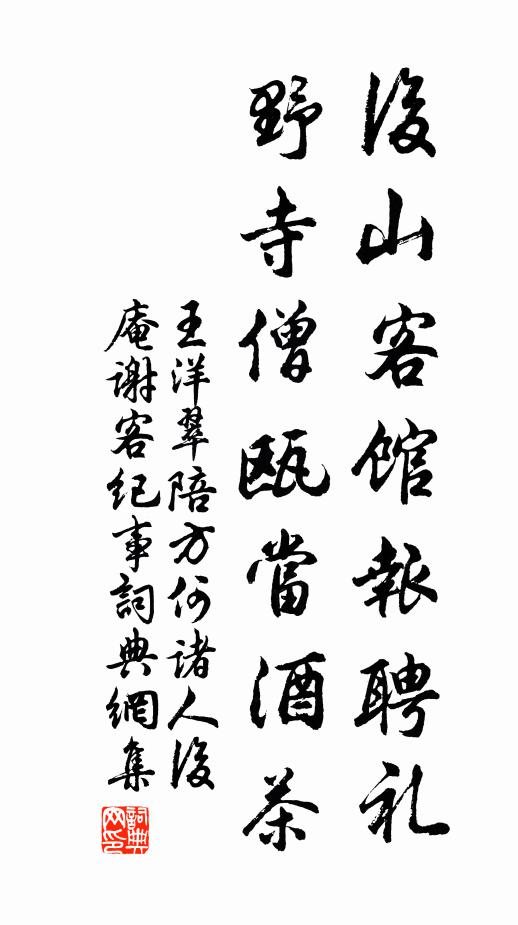 後山客館報聘礼
野寺僧甌當酒茶
王洋翠陪方何諸人後
庵謝客纪事詞典網集
詞典網印